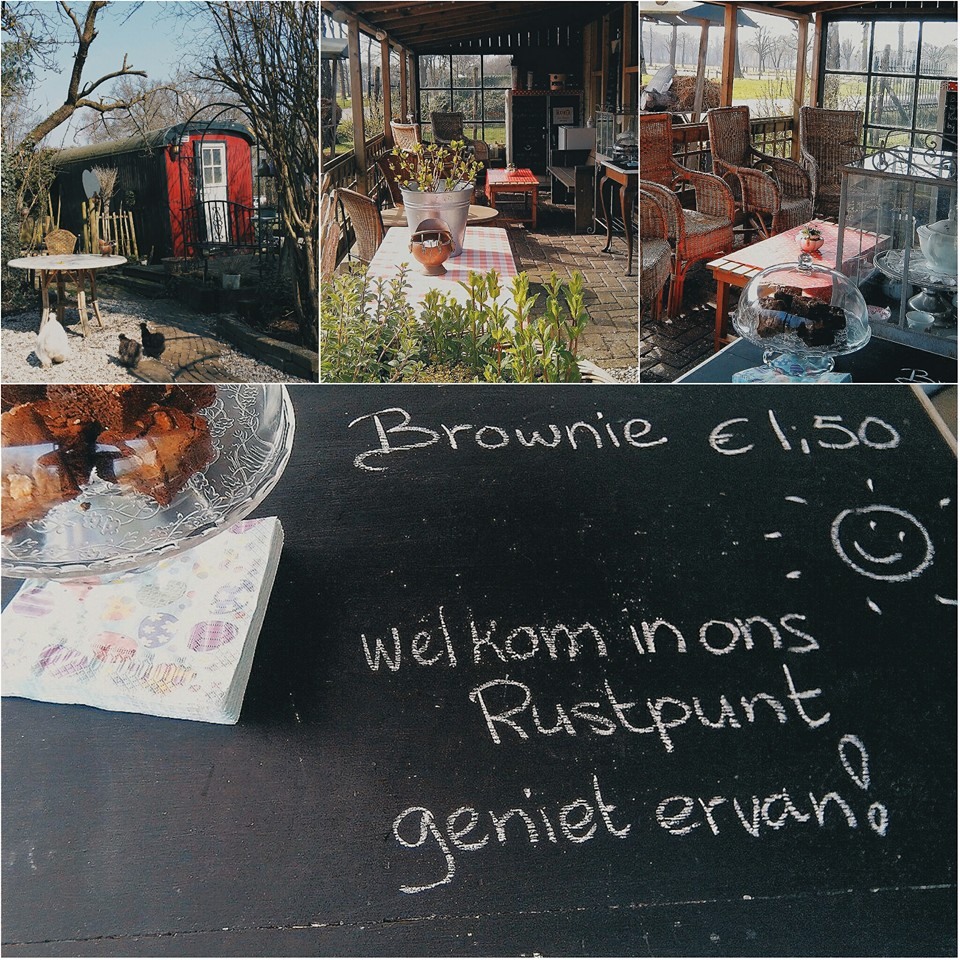 Brownie €1,50
welkom in ons
Rustpunt
geniet ervan!